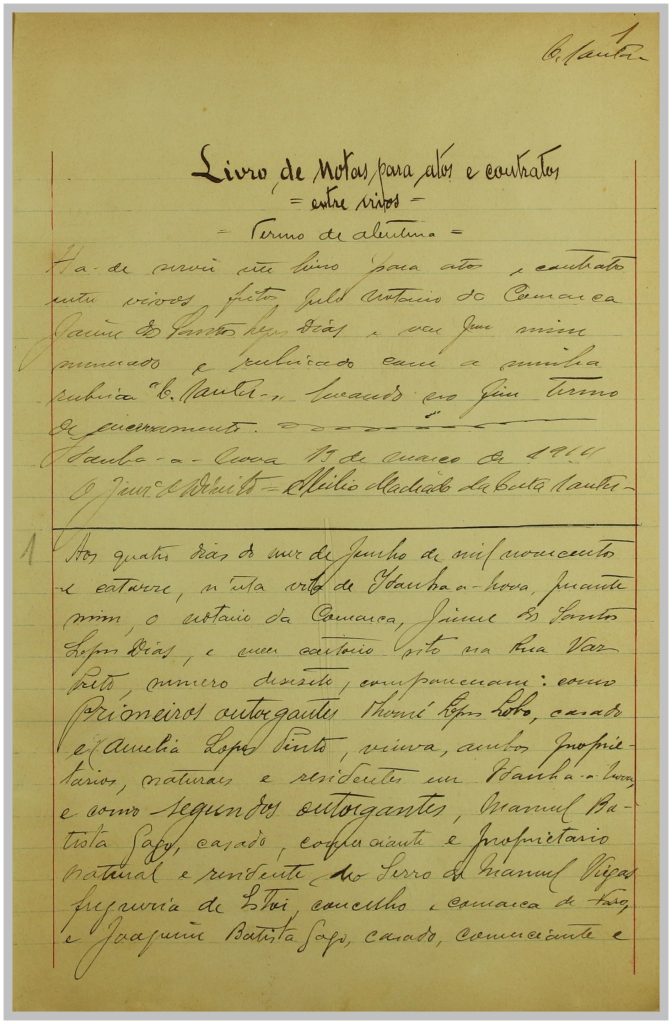 1
Livro de Notas para atos e contratos
= entre vivos =
= Termo de abertura =
Ha-de servir este livro para atos e contratos
entre vivos feitos pelo notario da Comarca
Jaime dos Santos Lopes Dias e vai por mim
numerado e rubricado com a minha
rubrica levando no fim termo
de encerramento.
Idanha-a-Nova 13 de março de 1914
O Juiz de Direito = Machado da Costa
1
Aos quatro dias do mez de Junho de mil novecentos
e catorze, n'esta vila de Idanha-a-Nova, perante
mim, o notario da Comarca, Jaime dos Santos
Lopes Dias, e meu cartorio sito na Rua Vaz
Preto, numero desoito, compareceram: como
Primeiros outorgantes Thomé Lopes Lobo, casado
e Amelia Lopes Pinto, viuva, ambos proprie-
tarios, naturais e residentes em Idanha-a-Nova,
e como segundos outorgantes, Manuel Ba-
tista Gago, casado, comerciante e proprietario
natural e residente no Serro de Manuel Viegas
freguesia de Estoi, concelho e comarca de Faro,
e Joaquim Batista Gago, casado, comerciante e